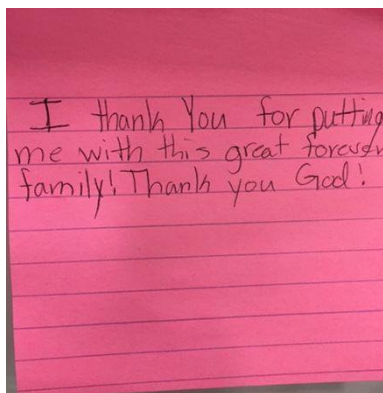 I thank You for putting
me with this great forever
family! Thank you God!